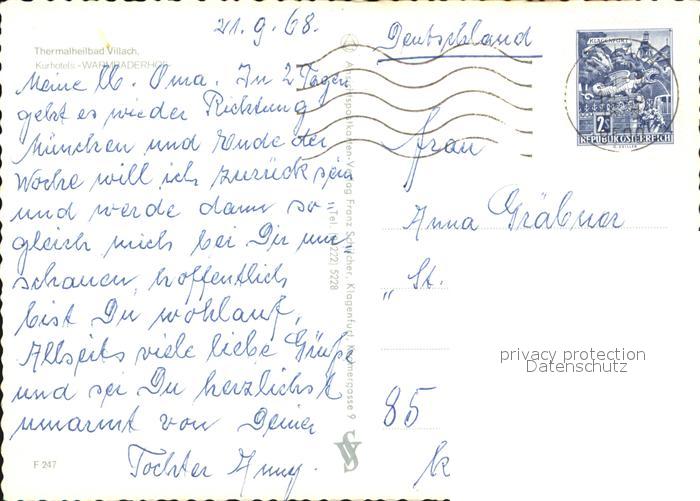 21.9.68.
Deutschland
Thermalheilbad Villach,
Kurhotels «WARMBADERHOF»
Meine lb. Oma. In 2 Tagen
geht es wieder Richtung
München und Ende der
Woche will ich zurück sein
und werde dann so=
gleich mich bei Dir um-
schauen, hoffentlich
bist Du wohlauf,
Allseits viele liebe Grüße
und sei Du herzlichst
umarmt von Deiner
Tochter Anny.
F 247
Verlag Franz Schilcher, Klagenfurt,
Tel. (04222) 5228
KLAGENFURT
2S
REPUBLIK ÖSTERREICH
Frau
Anna Gräbner
„ St.
85
privacy protection
Datenschutz